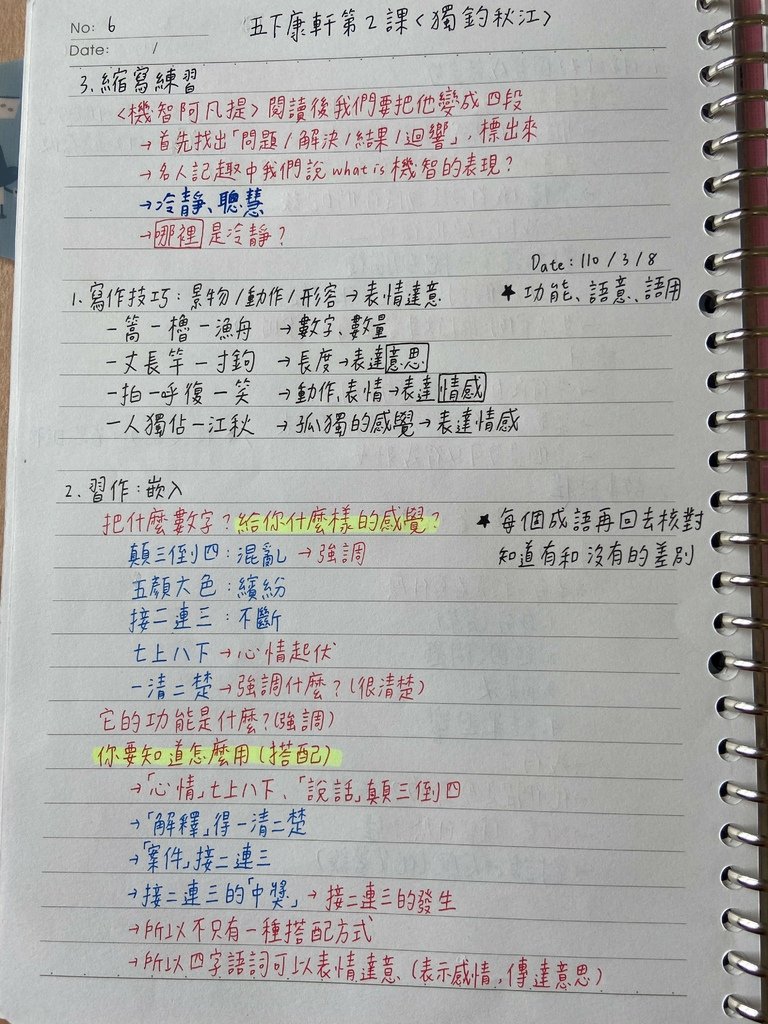 No: 6
五下康軒第2課〈獨釣秋江〉
Date: /
3.縮寫練習
〈機智阿凡提〉閱讀後我們要把他變成四段
→首先找出「問題/解決/結果/迴響」,標出來
→名人記趣中我們說what is 機智的表現?
→冷靜、聰慧
→哪裡是冷靜?
Date:110/3/8
1.寫作技巧:景物/動作/形容→表情達意
★功能、語意、語用
一篙一櫓一漁舟 →數字、數量
一丈長竿一寸鉤 →長度→表達意思
一拍一呼復一笑 →動作、表情→表達情感
一人獨佔一江秋 →孤獨的感覺→表達情感
2.習作:嵌入
把什麼數字?給你什麼樣的感覺?
★每個成語再回去核對
知道有和沒有的差別
顛三倒四:混亂→強調
五顏六色:繽紛
接二連三:不斷
七上八下→心情起伏
一清二楚→強調什麼?(很清楚)
它的功能是什麼?(強調)
你要知道怎麼用(搭配)
→「心情」七上八下、「說話」顛三倒四
→「解釋」得一清二楚
→「案件」接二連三
→接二連三的「中獎」→接二連三的發生
→所以不只有一種搭配方式
→所以四字語詞可以表情達意、(表示感情,傳達意思)